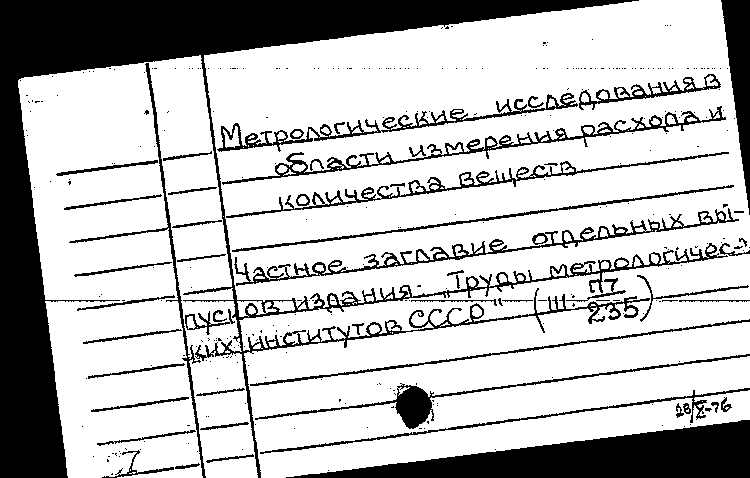 Метрологические исследования в
области измерения расхода и
количества веществ
Частное заглавие отдельных вы-
пусков издания: „Труды метрологичес-
ких институтов СССР" (Ш: П7/235)
28/X-76